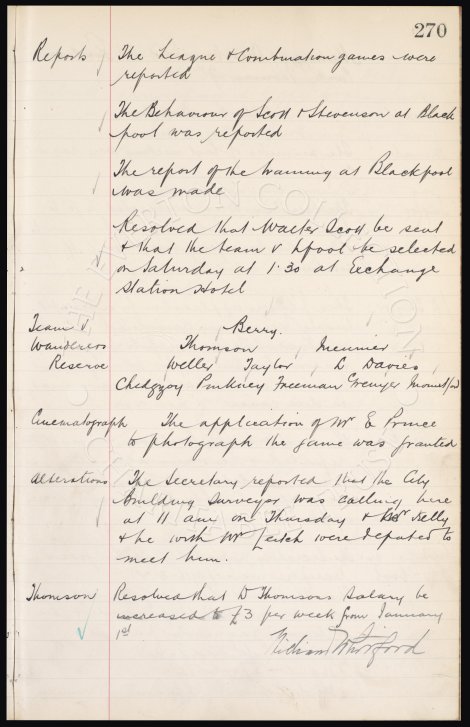 270
Reports The League & Combination games were
reported
The Behaviour of Scott & Stevenson at Black
pool was reported
The report of the training at Blackpool
was made
Resolved that Walter Scott be sent
& that the team v L'pool be selected
on Saturday at 1.30 at Exchange
Station Hotel
Team v Berry.
Wanderers Thomson Meunier
Reserve Weller Taylor L Davies
Chedgzoy Pinkney Freeman Gourlay Mountford
Cinematograph The application of Mr E Prince
to photograph the game was granted
Alterations The Secretary reported that the City
Building Surveyor was calling here
at 11 am on Thursday & Mr Kelly
& he with Mr Leitch were deputed to
meet him.
Thomson Resolved that D Thomsons salary be
increased to £3 per week from January
1st
William